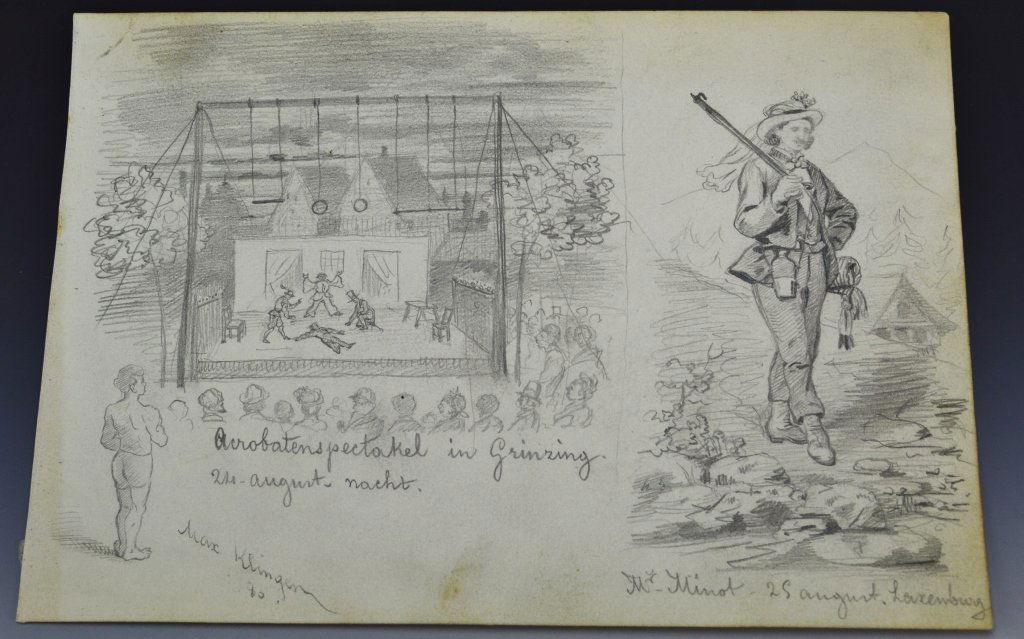 Acrobatenspectakel in Grinzing.
24. august nacht.
Max Klingen
Mr. Minot - 25 august. Laxenburg